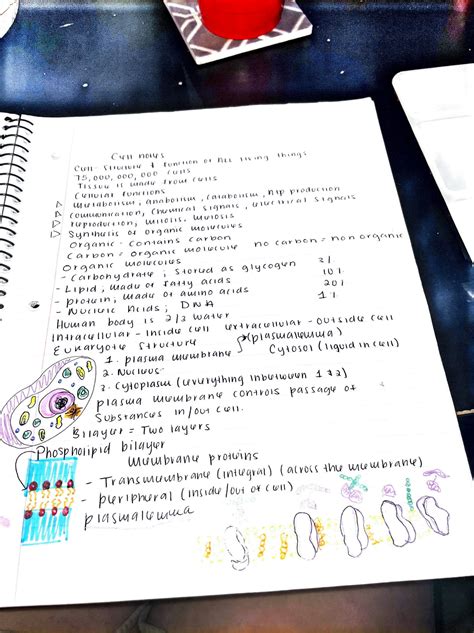 Cell notes
Cell- structure & function of ALL living things
75,000,000,000 cells
Tissue is made from cells
Cellular functions
▷ Metabolism, Anabolism, Catabolism, Atp production
▷ Communication, Chemical signals, electrical signals
▷ reproduction, mitosis, meiosis
▷ Synthesis of organic molecules
Organic- Contains carbon
Carbon = Organic molecule no carbon = non organic
Organic molecules
- Carbohydrate; Stored as glycogen 3%
- Lipid; made of fatty acids 10%
- protein; made of amino acids 20%
- Nucleic Acids; DNA 1%
Human body is 2/3 water
Intracellular - Inside cell extracellular - outside cell
Eukaryote Structure
1. plasma membrane (plasmalemma)
2. Nucleus Cytosol (liquid in cell)
3. Cytoplasm (everything inbetween 1 & 2)
plasma membrane controls passage of
Substances in/out cell.
Bilayer = Two layers
Phospholipid bilayer
Membrane proteins
- Transmembrane (integral) (across the membrane)
- peripheral (inside/out of cell)
plasmalemma